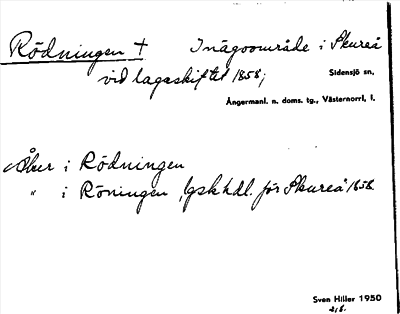 Rödningen † Inägoområde i Skureå
vid lagaskiftet 1858;
Sidensjö sn,
Ångermanl. n. doms. tg., Västernorrl, l.
Åker i Rödningen
" i Röningen, lgskhdl. för Skureå 1858
Sven Hiller 1950